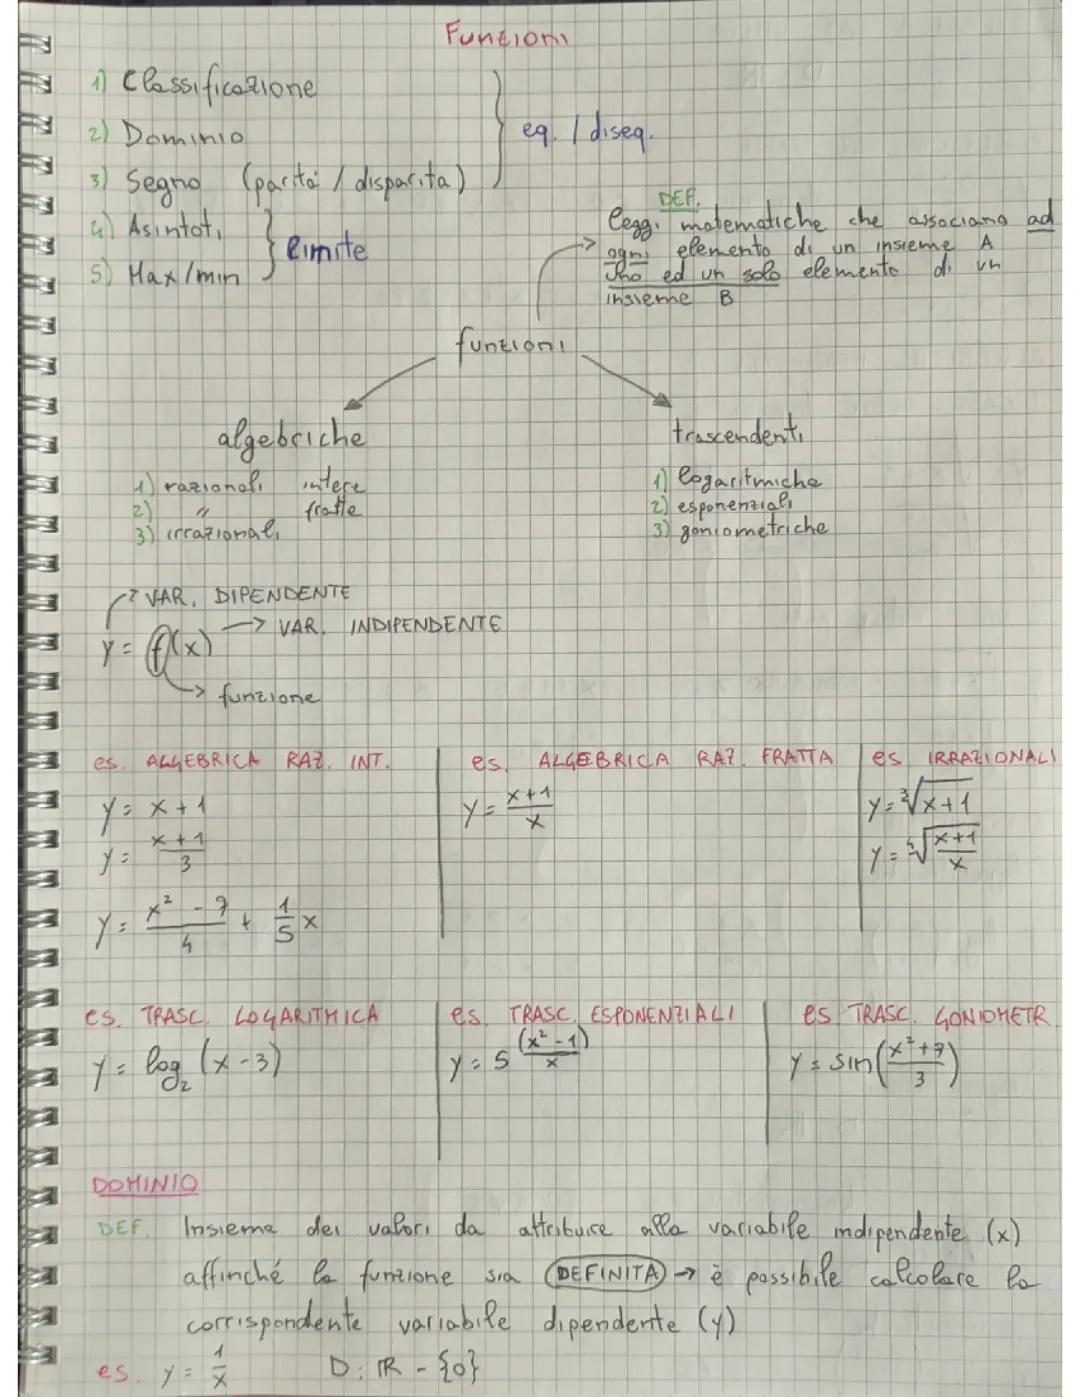 Funzioni
1) Classificazione
2) Dominio
3) Segno (parità / disparità)
eq. / diseq.
4) Asintoti
5) Max/min
limite
DEF.
leggi matematiche che associano ad
ogni elemento di un insieme A
uno ed un solo elemento di un
insieme B
funzioni
algebriche
1) razionali intere
2) " fratte
3) irrazionali
trascendenti
1) logaritmiche
2) esponenziali
3) goniometriche
VAR. DIPENDENTE
y = f(x) → VAR. INDIPENDENTE
→ funzione
es. ALGEBRICA RAZ. INT.
y = x + 1
y = (x + 1)/3
y = (x² - 7)/4 + 1/5 x
es. ALGEBRICA RAZ. FRATTA
y = (x+1)/x
es IRRAZIONALI
y = ³√(x+1)
y = √((x+1)/x)
es. TRASC. LOGARITMICA
y = log₂ (x-3)
es. TRASC. ESPONENZIALI
y = 5^((x² - 1)/x)
es TRASC. GONIOMETR.
y = sin((x²+7)/3)
DOMINIO
DEF. Insieme dei valori da attribuire alla variabile indipendente (x)
affinché la funzione sia DEFINITA → è possibile calcolare la
corrispondente variabile dipendente (y)
es. y = 1/x D: ℝ - {0}